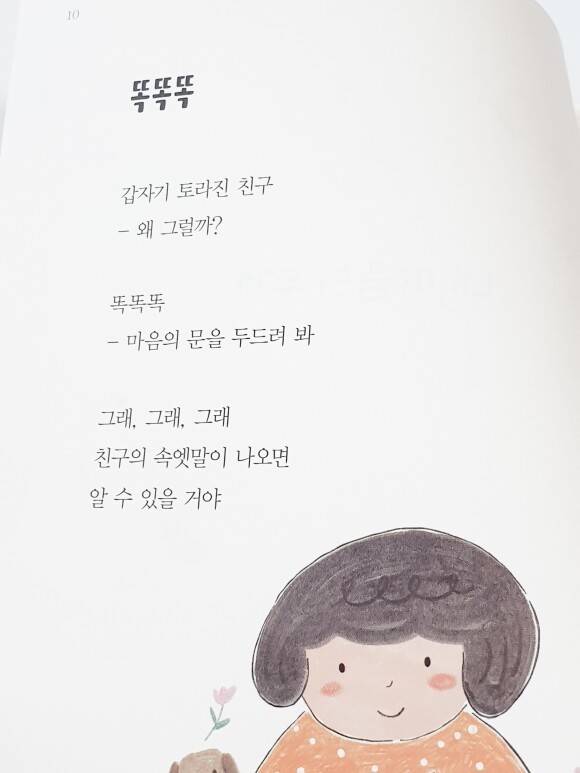 10
똑똑똑
갑자기 토라진 친구
– 왜 그럴까?
똑똑똑
– 마음의 문을 두드려 봐
그래, 그래, 그래
친구의 속엣말이 나오면
알 수 있을 거야